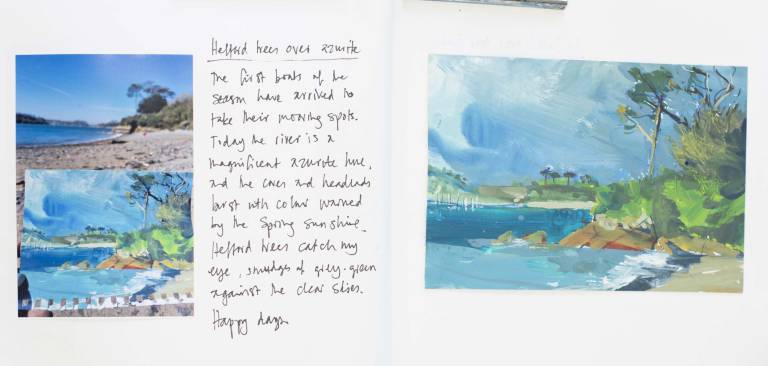 Helford trees over azurite
The first boats of the
season have arrived to
take their mooring spots.
Today the river is a
magnificent azurite hue,
and the coves and headlands
burst with colour warmed
by the Spring sunshine.
Helford trees catch my
eye, smudges of grey-green
against the clear skies.
Happy days